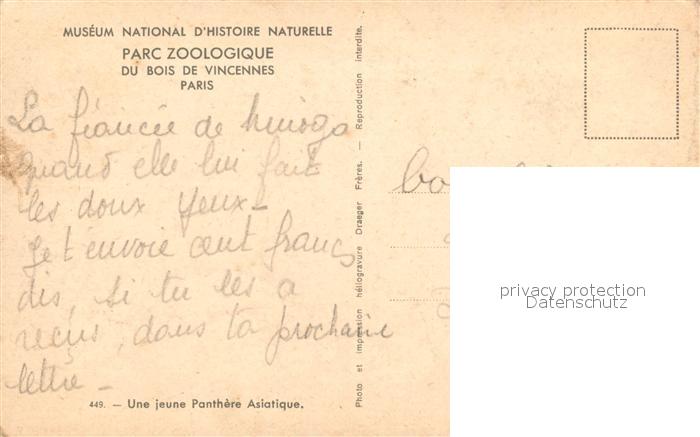 MUSÉUM NATIONAL D'HISTOIRE NATURELLE
PARC ZOOLOGIQUE
DU BOIS DE VINCENNES
PARIS
La fiancée de
quand elle lui fait
les doux yeux -
Je t'envoie cent francs
dis, si tu les a
reçus, dans ta prochaine
lettre -
449. — Une jeune Panthère Asiatique.
Photo et impression héliogravure Draeger Frères. — Reproduction interdite.
privacy protection
Datenschutz